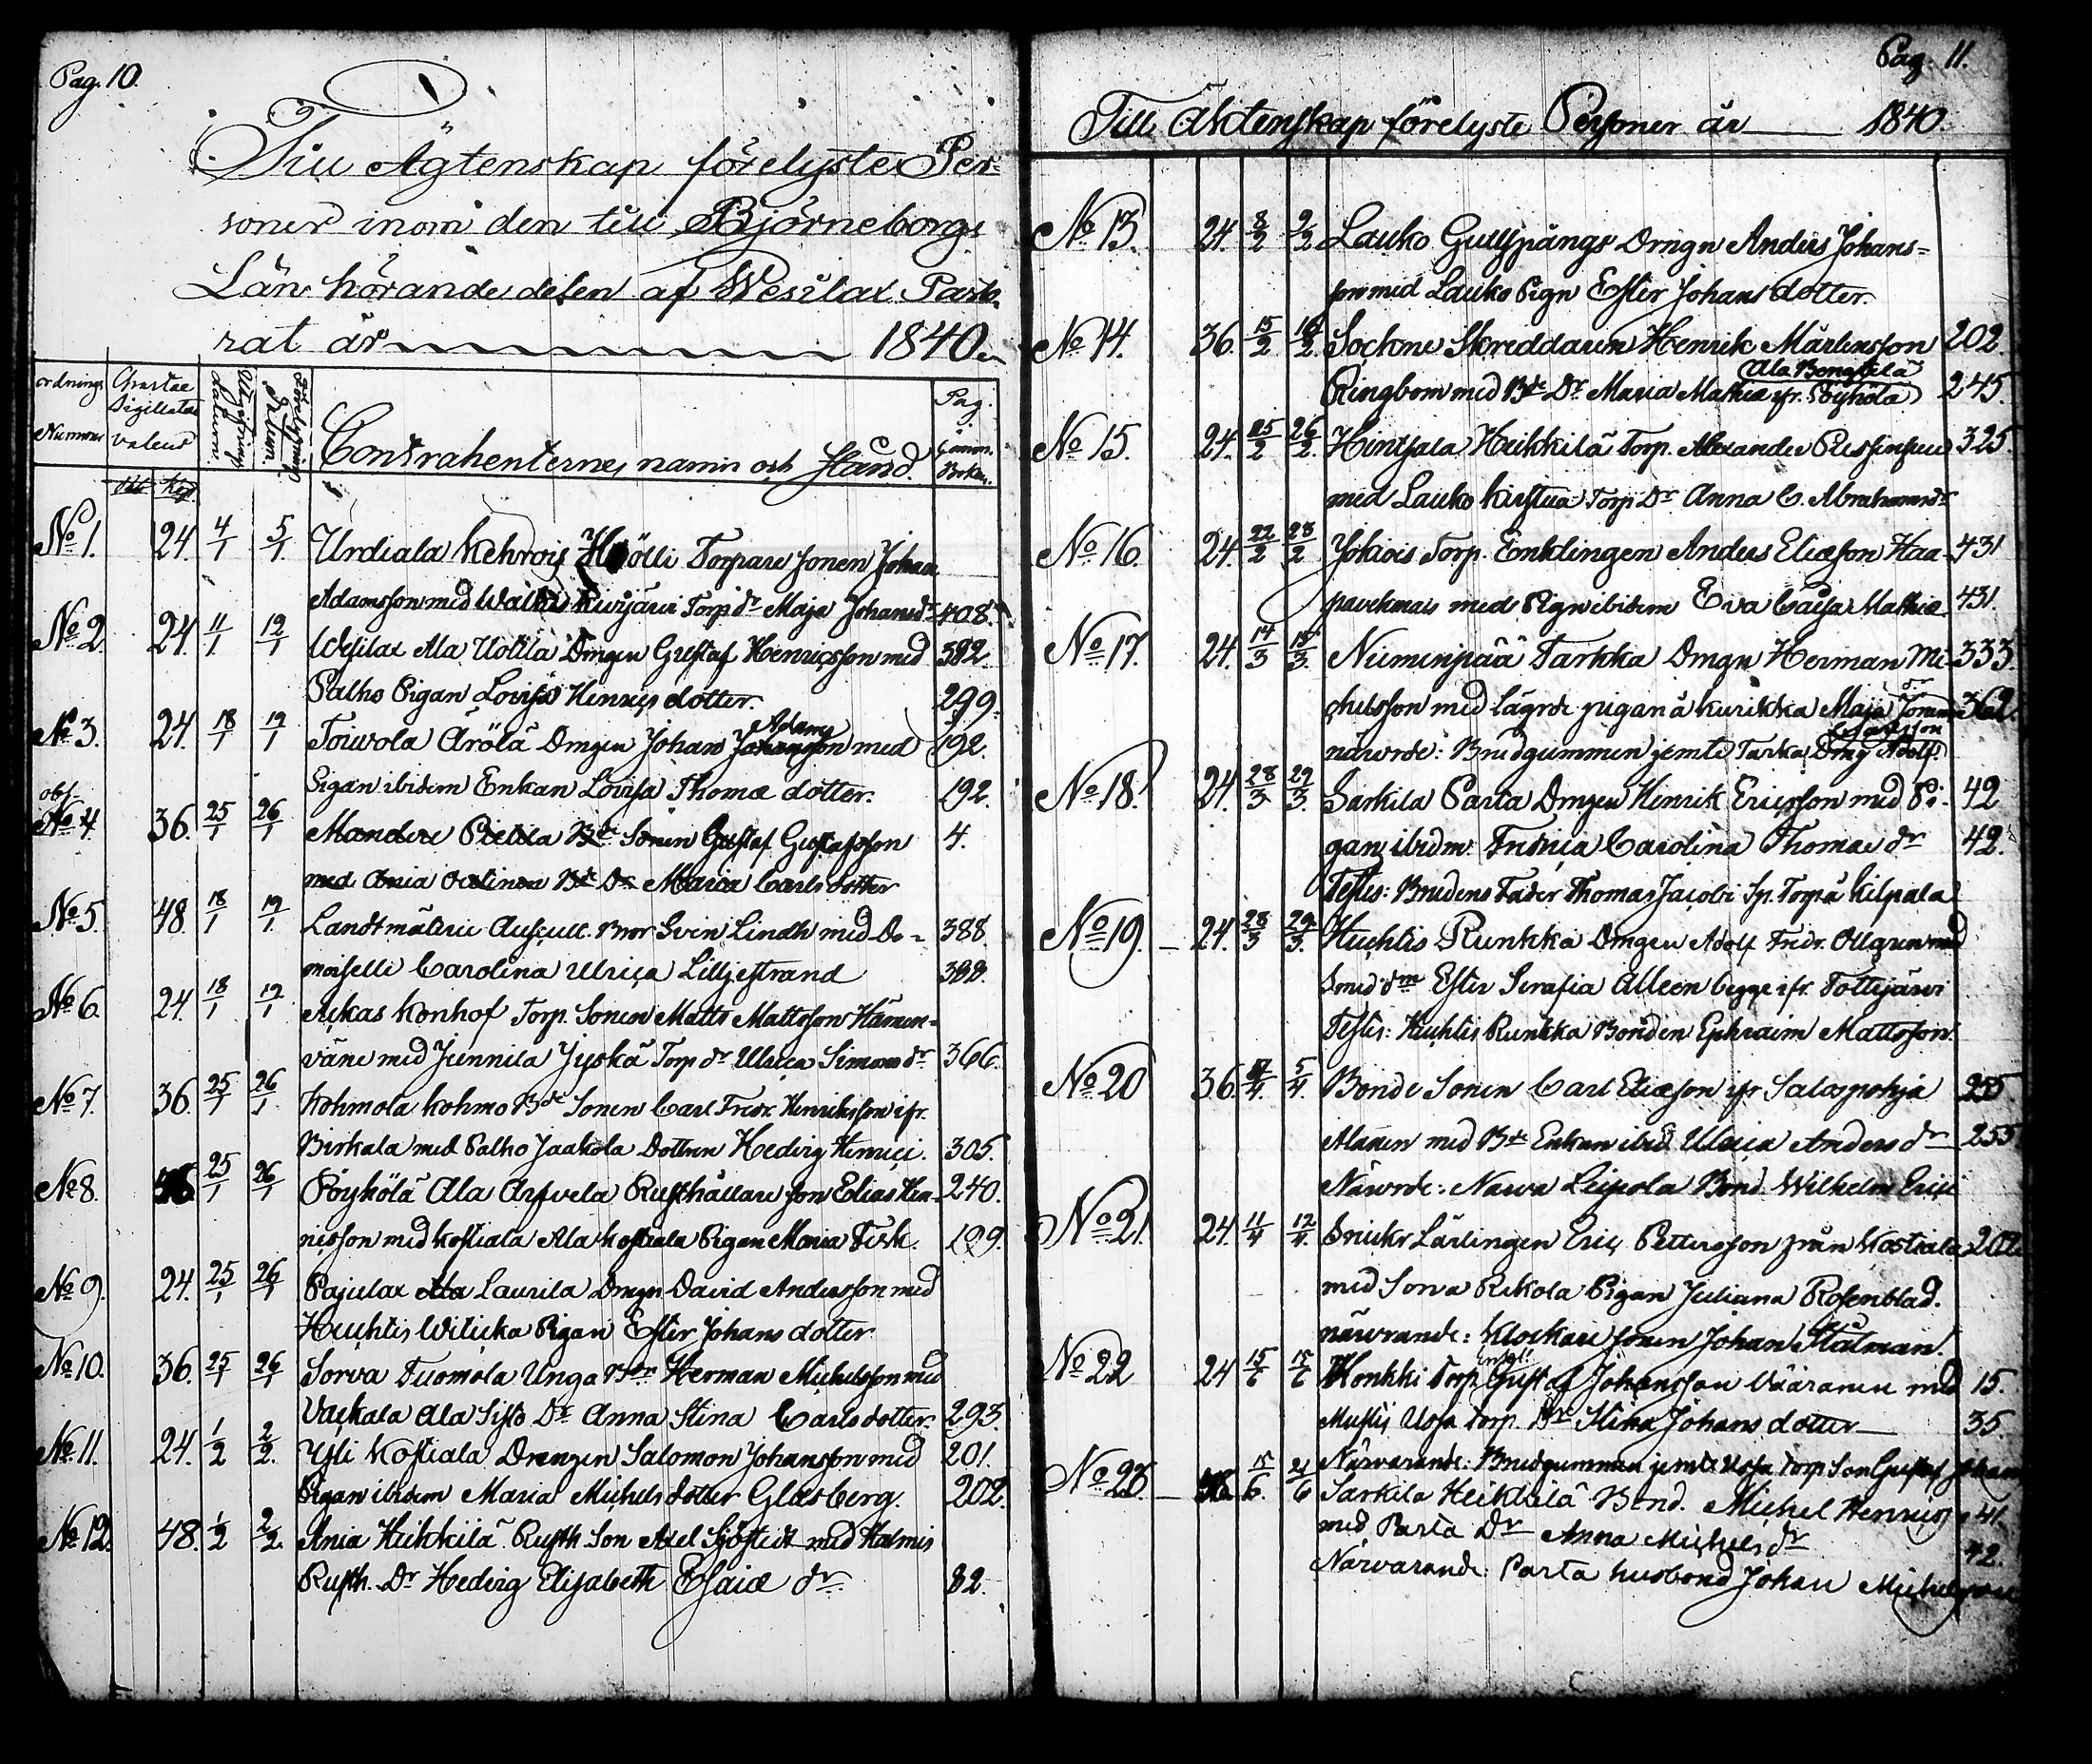 Pag. 10.
Till Ägtenskap förelyste Per-
soner inom den till Björneborgs
Län hörande delen af Wesilax Past.
rat år 1840.
ordnings Nummer
Chartae Sigillatae valeur
Utgifnings datum.
Förelysnings datum.
Contrahenternes namn och stånd.
Pag. i Comm. Boken.
Kop.
No 1. 24. 4/1 5/1 Urdiala Kehrois Hölli Torpare sonen Johan
Adamsson med Torp dr Maja Johansdr 408.
No 2. 24. 11/1 12/1 Wesilax Ala Uotila Drngen Gustaf Henricsson med 392.
Palho Pigan Lovisa Henrics dotter. 299.
No 3. 24. 18/1 19/1 Toivola Arölä Drngen Johan Adams med 192.
Pigan ibidem Enkan Lovisa Thomæ dotter. 192.
obs.
No 4. 36. 25/1 26/1 Mandere Pietila Bde Sonen Gustaf Gustafsson 4.
med Ania Ontinen Bde Dr Maria Carlsdotter
No 5. 48. 18/1 19/1 Landtmäterie Auscult. Sven Lindh med De- 388.
moiselle Carolina Ulrica Lilljestrand 388.
No 6. 24. 18/1 19/1 Ackas Konhof Torp. Sonen Matts Mattsson Hämen-
väne med Junnila Jyskä Torp dr Ulrica Simons dr 366.
No 7. 36. 25/1 26/1 Kohmola Kohmo Bde Sonen Carl Fredr. Henriksson ifr.
Birkala med Palho Jaakola Dottren Hedvig Henrici. 305.
No 8. 25/1 26/1 Pöyhölä Ala Arfvela Rusthållare son Elias Hen- 240.
ricsson med Kostiala Ala Kostiala Pigan Maria Fisk. 199.
No 9. 24. 25/1 26/1 Pajulax Laurila Drngn David Andersson med
Huhtis Pigan Ester Johans dotter
No 10. 36. 25/1 26/1 Sorva Tuomola Unga Herman Michelsson med
Vackala Ala Sisto Dr Anna Stina Carls dotter. 293.
No 11. 24. 1/2 2/2. Ysti Kostiala Drengen Salomon Johansson med 201.
Pigan ibidem Maria Michels dotter Glasberg. 202.
No 12. 48. 1/2 2/2. Ania Heikkilä Rusth Son Axel Sjöstedt med Halmis
Rusth. Dr Hedvig Elisabeth Esaiæ dr. 82.
Pag. 11.
Till Äktenskap förelyste Personer år 1840.
No 13. 24. 8/2 9/2 Lauko Gullspångs Drngn Anders Johans-
son med Lauko Pign Ester Johans dotter.
No 14. 36. 15/2 16/2. Sockne Skreddaren Henrik Mårtensson 202.
Ala Bengtilä
Ringbom med Bde Dr. Maria Mathiæ ifr. Pöyhölä 245.
No 15. 24. 25/2 26/2. Hinsala Heikkilä Torp. Alexander 325.
med Lauko Torp Dr Anna C. Abrahamsdr
No 16. 24. 22/2 23/2 Jokiois Torp. Enklingen Anders Eliæson Haa- 431
med Pign ibidem Eva Caisa Mathiæ. 431.
No 17. 24. 14/3 15/3. Niiminpää Tarkka Drngn Herman Mi- 333.
chelsson med lägrde pigan å Kurikka Maja 362.
närvrde: Brudgummen jemte Tarka Drng Adolf.
No 18. 24. 28/3 29/3. Sarkila Parta Drngen Henrik Ericsson med Pi- 42
gan ibidm. Fredrica Carolina Thomae dr 42.
Testes: Brudens Fader Thomas Jacobi Sp. Torp å Kilpala
No 19. 24. 28/3 29/3. Huhtis Runkka Drngen Adolf Fredr. Ollgren med
Smed drn Ester Serafia Alleen begge ifr. Tottijärvi
Testes: Huhtis Runkka Bonden Ephraim Mattsson.
No 20 36. 5/4. Bonde Sonen Carl Eliæson ifr Salospohja 255
Alanen med Bde Enkan ibid. Ulrica Anders dr 255
Närvrde: Narva Leipola Bond. Wilhelm Erici
No 21. 24. 11/4 12/4. Snickr Lärlingen Eric Pettersson från Kostiala 202.
med Sorva Rekola Pigan Juliana Rosenblad.
närvrande: Klockare sonen Johan Stålman.
No 22 24 15/6 15/6 Honkki Torp. Gustaf Johansson Vääränen med 15.
Mustis Uosa Torp. Dr Stina Johans dotter 35.
Närvarande: Brudgummen jemte Uosa Torp Son Gustaf Johan
No 23. 15/6. 21/6 Sarkila Heikkilä Bond. Michel Henrics 41.
med Parta Dr Anna Michels dr 42.
Närvarande: Parta husbond Johan Michelsson